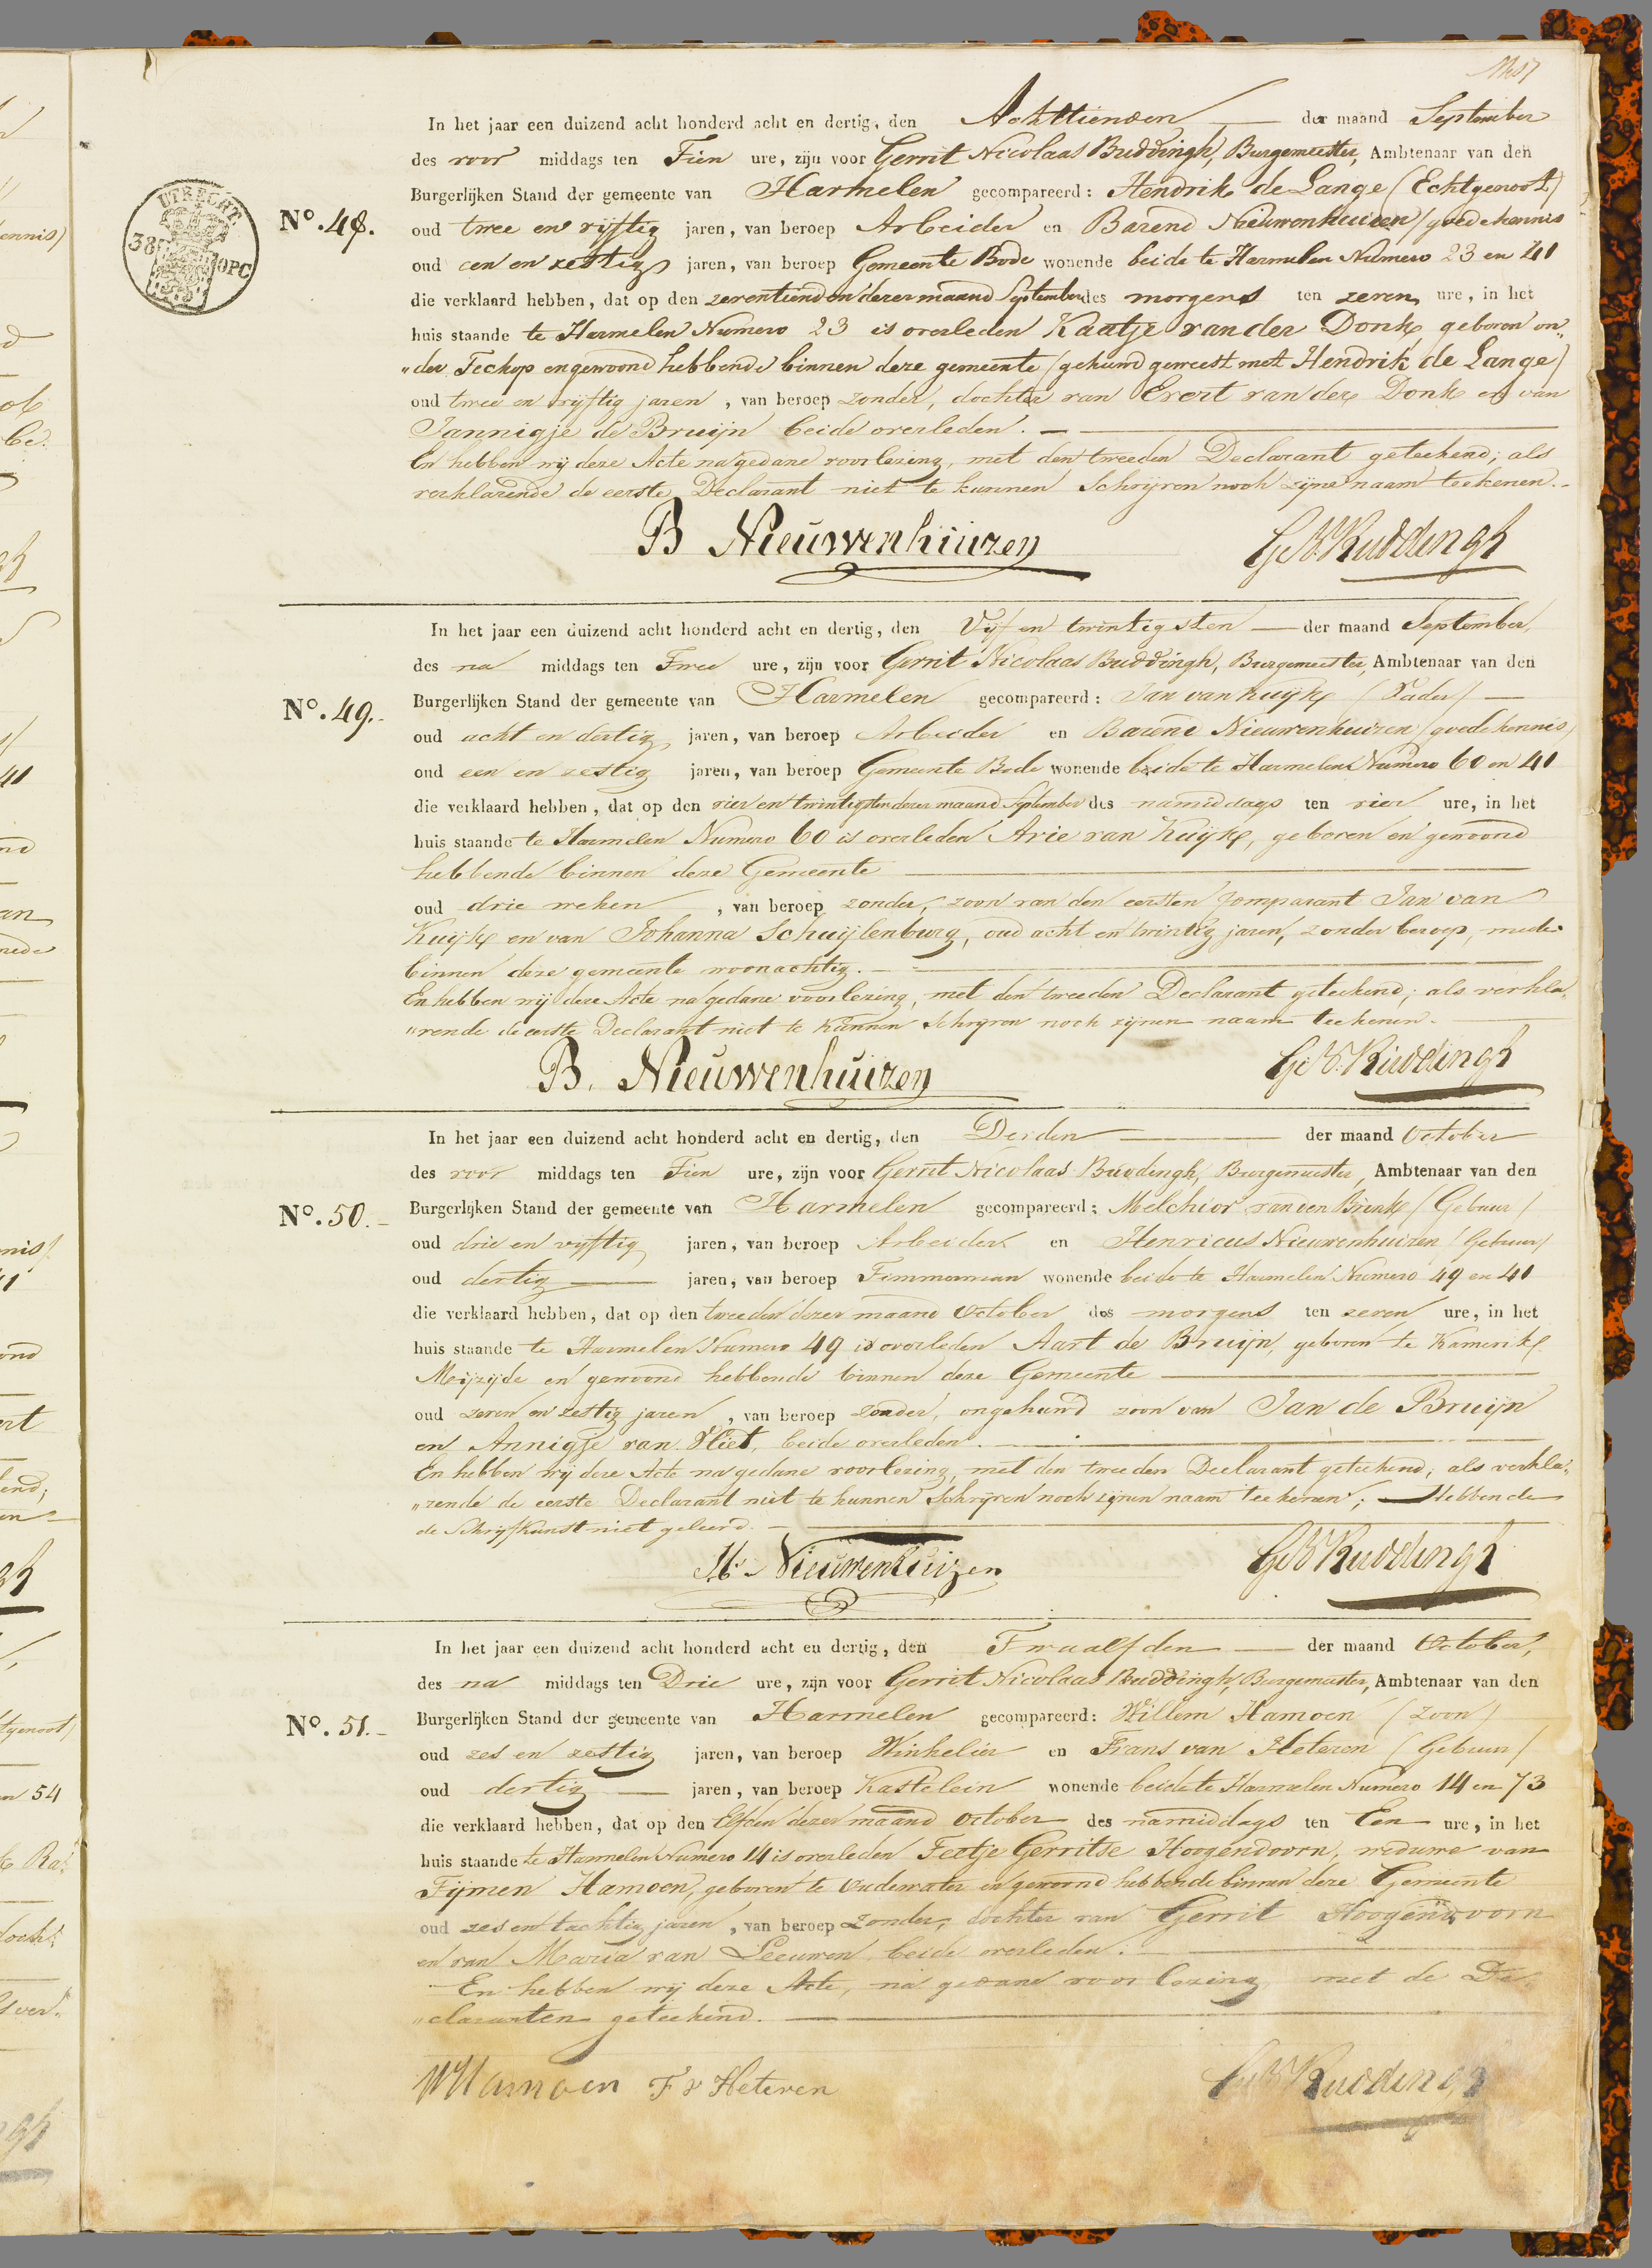 In het jaar een duizend acht honderd acht en dertig, den Achttienden der maand September
des voor middags ten Tien ure, zijn voor Gerrit Nicolaas Buddingh, Burgemeester, Ambtenaar van den
Burgerlijken Stand der gemeente van Harmelen gecompareerd: Hendrik de Lange (Echtgenoot)
UTRECHT
38 OPC
No. 48.
oud twee en vijftig jaren, van beroep Arbeider en Barend Nieuwenhuizen (goede kennis
oud een en zestig jaren, van beroep Gemeente Bode wonende beide te Harmelen Numero 23 en 41
die verklaard hebben, dat op den zeventienden dezer maand September des morgens ten zeven ure, in het
huis staande te Harmelen Numero 23 is overleden Kaatje van der Donk, geboren on„
„der Teckop en gewoond hebbende binnen deze gemeente (gehuwd geweest met Hendrik de Lange)
oud twee en vijftig jaren, van beroep zonder, dochter van Evert van der Donk en van
Jannigje de Bruijn beide overleden.
En hebben wij deze Acte na gedane voorlezing, met den tweeden Declarant geteekend; als
verklarende de eerste Declarant niet te kunnen Schrijven noch zijne naam teekenen.
B Nieuwenhuizen G N Buddingh
In het jaar een duizend acht honderd acht en dertig, den Vijf en twintigsten der maand September,
des na middags ten Twee ure, zijn voor Gerrit Nicolaas Buddingh, Burgemeester, Ambtenaar van den
No. 49.
Burgerlijken Stand der gemeente van Harmelen gecompareerd: Jan van Kuijk (Vader)
oud acht en dertig jaren, van beroep Arbeider en Barend Nieuwenhuizen (goede kennis)
oud een en zestig jaren, van beroep Gemeente Bode wonende beide te Harmelen Numero 60 en 41
die verklaard hebben, dat op den vier en twintigsten dezer maand September des namiddags ten vier ure, in het
huis staande te Harmelen Numero 60 is overleden Arie van Kuijk, geboren en gewoond
hebbende binnen deze Gemeente
oud drie weken, van beroep zonder, zoon van den eersten Comparant Jan van
Kuijk en van Johanna Schuijlenburg, oud acht en twintig jaren, zonder beroep, mede
binnen deze gemeente woonachtig.
En hebben wij deze Acte na gedane voorlezing, met den tweeden Declarant geteekend; als verkla„
„rende de eerste Declarant niet te kunnen Schrijven noch zijnen naam teekenen.
B. Nieuwenhuizen G N Buddingh
In het jaar een duizend acht honderd acht en dertig, den Derden der maand October
des voor middags ten Tien ure, zijn voor Gerrit Nicolaas Buddingh, Burgemeester, Ambtenaar van den
No. 50.
Burgerlijken Stand der gemeente van Harmelen gecompareerd: Melchior van den Brink (Gebuur)
oud drie en vijftig jaren, van beroep Arbeider en Henricus Nieuwenhuizen (Gebuur)
oud dertig jaren, van beroep Timmerman wonende beide te Harmelen Numero 49 en 41
die verklaard hebben, dat op den tweeden dezer maand October des morgens ten zeven ure, in het
huis staande te Harmelen Numero 49 is overleden Aart de Bruijn, geboren te Kamerik
Meijzijde en gewoond hebbende binnen deze Gemeente
oud zeven en zestig jaren, van beroep zonder, ongehuwd zoon van Jan de Bruijn
en Annigje van Vliet, beide overleden.
En hebben wij deze Acte na gedane voorlezing, met den tweeden Declarant geteekend; als verkla„
„rende de eerste Declarant niet te kunnen Schrijven noch zijnen naam teekenen; Hebbende
de Schrijfkunst niet geleerd.
H. Nieuwenhuizen G N Buddingh
In het jaar een duizend acht honderd acht en dertig, den Twaalfden der maand October,
des na middags ten Drie ure, zijn voor Gerrit Nicolaas Buddingh, Burgemeester, Ambtenaar van den
No. 51.
Burgerlijken Stand der gemeente van Harmelen gecompareerd: Willem Hamoen (Zoon)
oud zes en zestig jaren, van beroep Winkelier en Frans van Heteren (Gebuur)
oud dertig jaren, van beroep Kastelein wonende beide te Harmelen Numero 14 en 73
die verklaard hebben, dat op den Elfden dezer maand October des namiddags ten Een ure, in het
huis staande te Harmelen Numero 14 is overleden Feetje Gerritse Hoogendoorn, weduwe van
Tijmen Hamoen, geboren te Oudewater en gewoond hebbende binnen deze Gemeente
oud zes en tachtig jaren, van beroep Zonder, dochter van Gerrit Hoogendoorn
en van Maria van Leeuwen beide overleden.
En hebben wij deze Acte, na gedane voorlezing met de De„
„claranten geteekend.
W Hamoen F v Heteren G N Buddingh